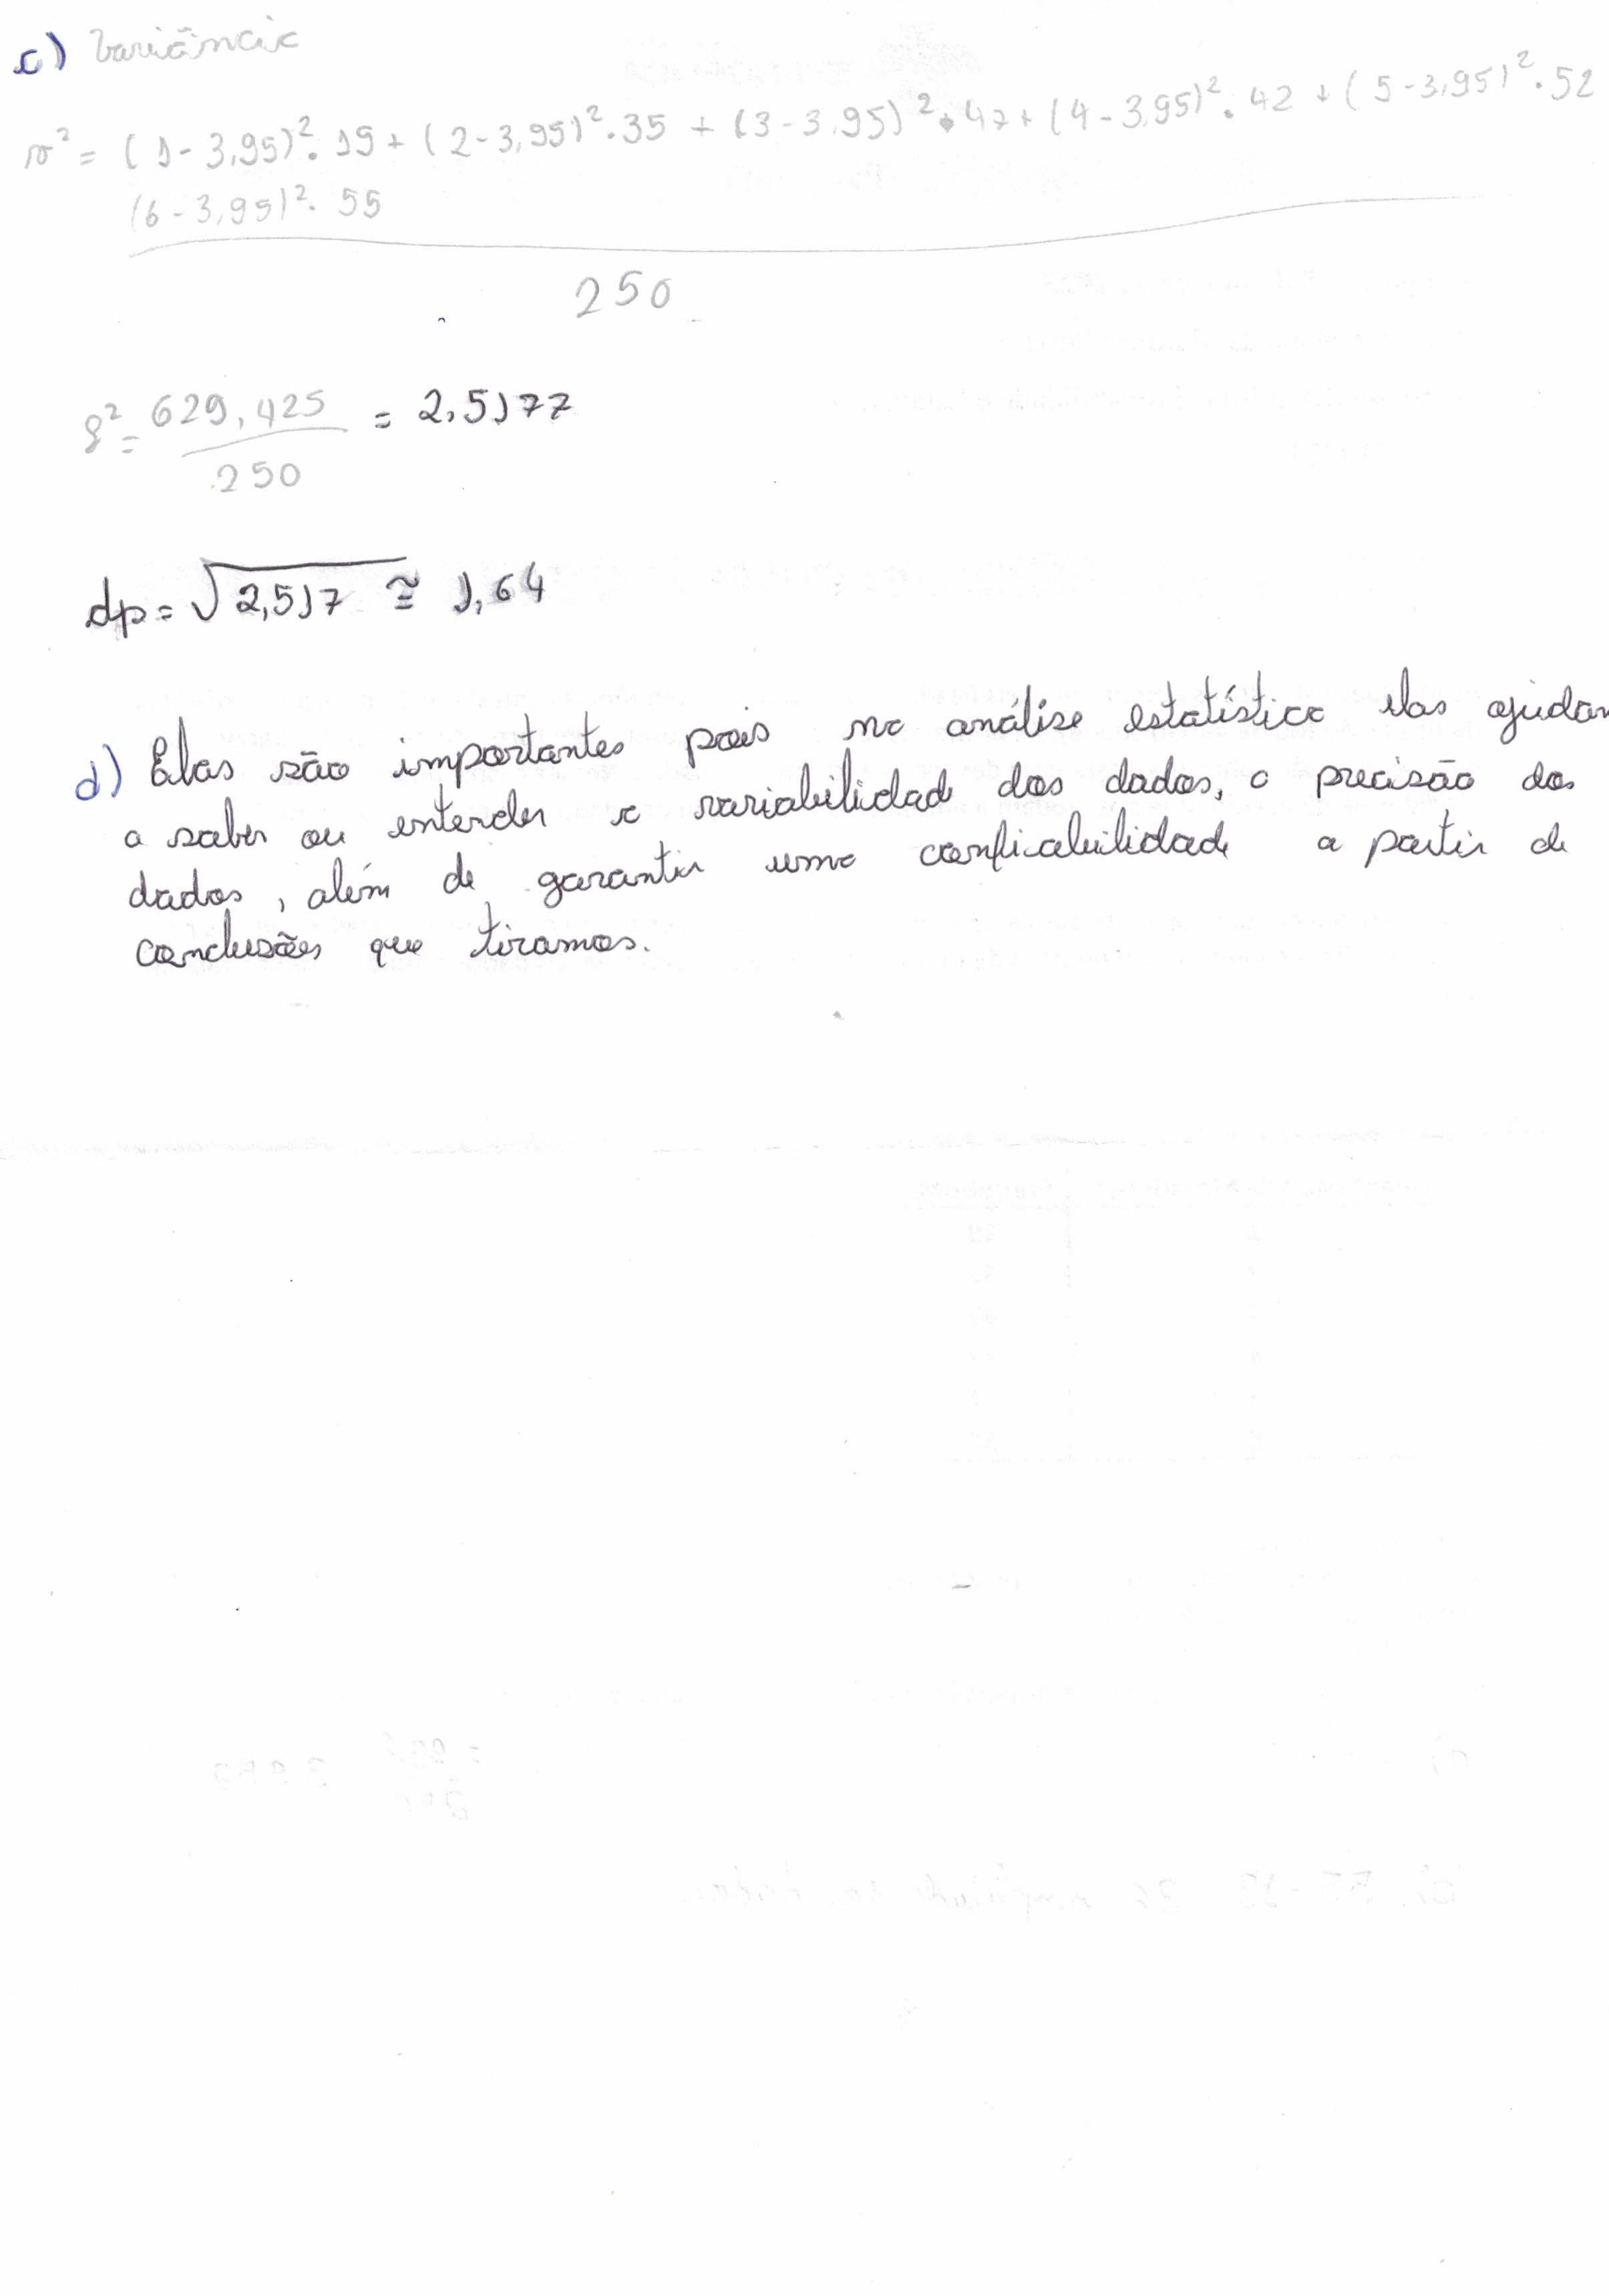 c) Variância
s² = (1 - 3,95)². 19 + (2 - 3,95)². 35 + (3 - 3,95)². 47 + (4 - 3,95)². 42 + (5 - 3,95)². 52
(6 - 3,95)². 55
250
s² = 629,425 = 2,5177
250
dp = √2,517 ≅ 1,64
d) Elas são importantes pois na análise estatística elas ajudam
a saber ou entender a variabilidade dos dados, a precisão dos
dados, além de garantir uma confiabilidade a partir de
conclusões que tiramos.